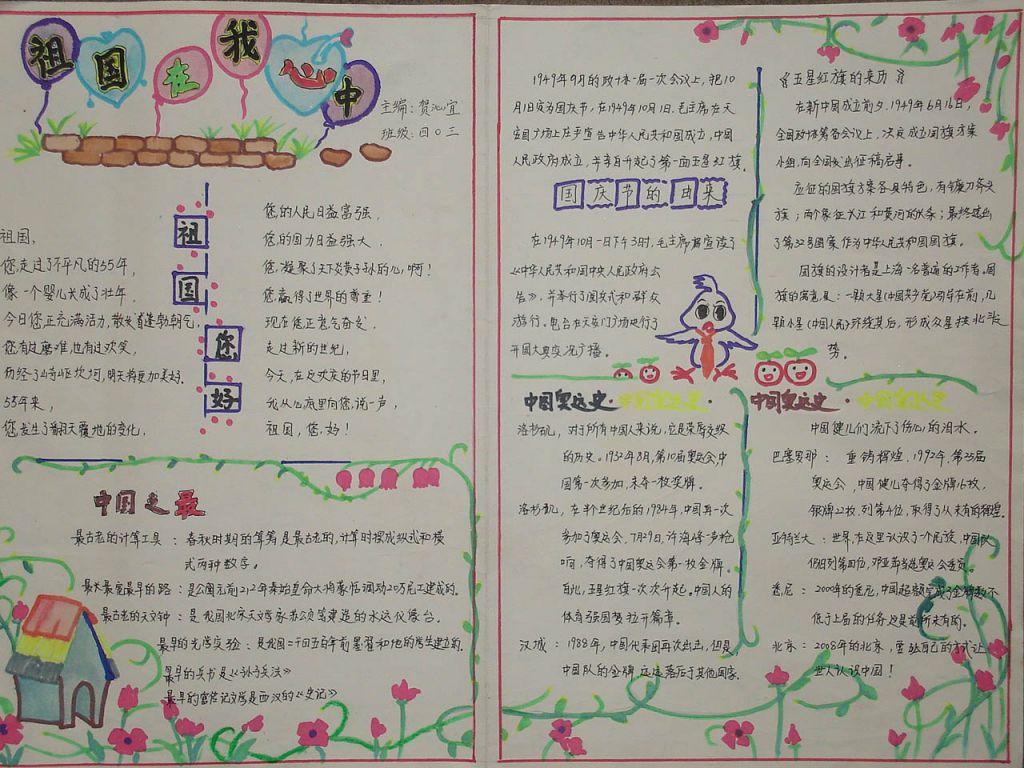 祖国在我心中
主编:贺沁宜
班级:四〇三
祖国您好
祖国,
您走过了不平凡的55年,
像一个婴儿长成了壮年,
今日您正充满活力,散发着蓬勃朝气,
您有过磨难,也有过欢笑,
历经了崎岖坎坷,明天将更加美好.
55年来,
您发生了翻天覆地的变化,
您的人民日益富强,
您的国力日益强大,
您,凝聚了天下炎黄子孙的心,啊!
您赢得了世界的尊重!
现在您正意气奋发,
走过新的世纪,
今天,在这欢庆的节日里,
我从心底里向您,说一声,
祖国,您,好!
中国之最
最古老的计算工具:春秋时期的算筹是最古老的,计算时摆成纵式和横
式两种数字。
最长最宽最早的路:是公元前212年秦始皇命大将蒙恬调动20万民工建成的.
最古老的天文钟:是我国北宋天文学家苏公等建造的水运仪像台.
最早的光学实验:是我国二千四五百年前墨翟和他的学生建立的.
最早的兵书是《孙子兵法》
最早的传记文学是西汉的《史记》
1949年9月的政协一届一次会议上,把10
月1日定为国庆节,在1949年10月1日,毛主席在天
安门广场上庄严宣告中华人民共和国成立,中国
人民政府成立,并亲自升起了第一面五星红旗.
国庆节的由来
在1949年10月一日下午3时,毛主席宣读了
《中华人民共和国中央人民政府公
告》,并举行了阅兵式和群众
游行.电台在天安门广场进行了
开国大典实况广播.
五星红旗的来历
在新中国成立前夕,1949年6月16日,
全国政协筹备会议上,决定成立国旗方案
小组,向全国发出征稿启事.
应征的国旗方案各具特色,有镰刀斧头
旗;两个象征长江和黄河的长条;最终选出
了第32号图案作为中华人民共和国国旗.
国旗的设计者是上海一名普通的工作者.国
旗的寓意是:一颗大星(中国共产党)引导在前,几
颗小星(中国人民)环绕其后,形成众星拱北
势.
中国奥运史·中国奥运史·中国奥运史·中国奥运史
洛杉矶,对于所有中国人来说,它是荣辱交织
的历史.1932年8月,第10届奥运会,中
国第一次参加,未夺一枚奖牌.
洛杉矶,在半个世纪后的1984年,中国再一次
参加了奥运会,7月29日,许海峰一声枪
响,夺得了中国奥运会第一枚金牌.
自此,五星红旗一次次升起.中国人的
体育强国梦拉开篇章.
汉城:1988年,中国代表团再次出征,但是
中国队的金牌远远落后于其他国家.
中国健儿们流下了伤心的泪水.
巴塞罗那:重铸辉煌,1992年,第25届
奥运会,中国健儿夺得了金牌16枚,
银牌22枚.列第4位,取得了从未有的辉煌.
亚特兰大:世界,在这里认识了一个民族,中国队
仍旧列第四位,邓亚萍当选奥运会委员.
悉尼:2000年的悉尼,中国超额完成了金牌数不
低于上届的任务.这是前所未有的.
北京:2008年的北京,要以自己的方式让
世人认识中国!